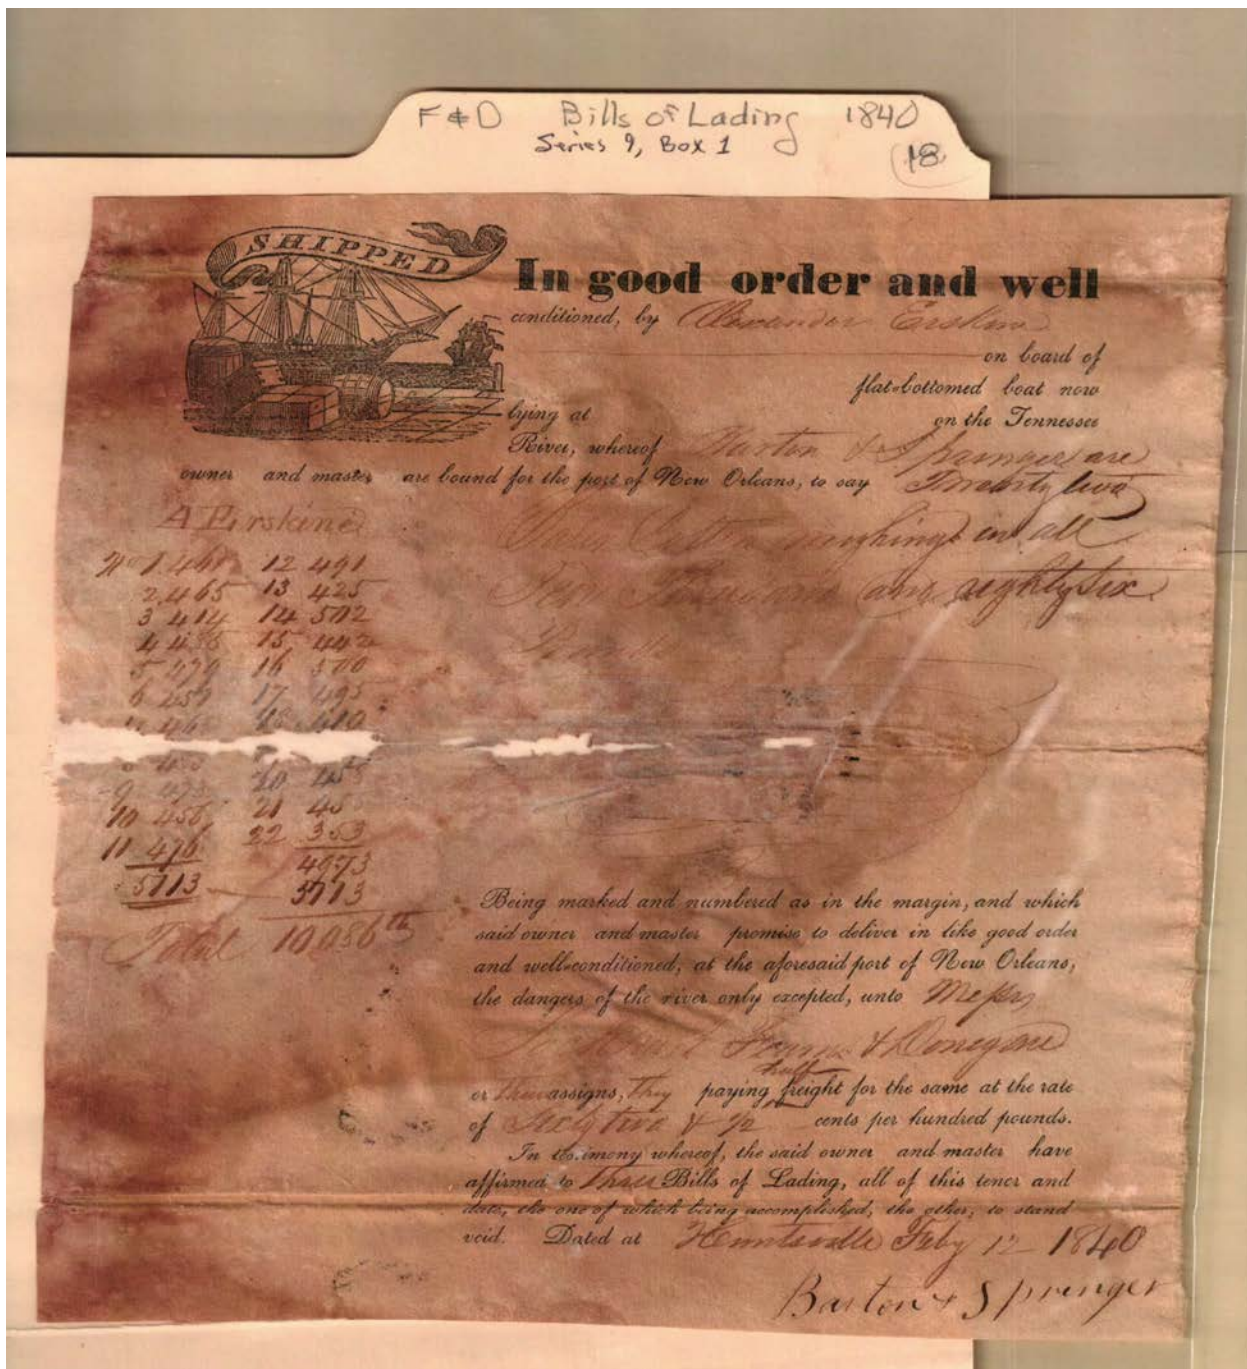 F & D Bills of Lading 1840
Series 9, Box 1
18
SHIPPED
In good order and well
conditioned, by Alexander Erskine
on board of
flat-bottomed boat now
lying at on the Tennessee
River, whereof Barton & Springer are
owner and master are bound for the port of New Orleans, to say Twenty two
Bales Cotton weighing in all
Ten Thousand and eighty six
Pounds
A Erskine
No 1 461 12 491
2 465 13 425
3 414 14 502
4 15 442
5 479 16 500
6 259 17 495
18
20
9 21
10 456 22 353
11 476 4973
5113 5113
Total 10086 lb
Being marked and numbered as in the margin, and which
said owner and master promise to deliver in like good order
and well-conditioned, at the aforesaid port of New Orleans,
the dangers of the river only excepted, unto Messrs
Fearn & Donegane
half
or their assigns, they paying freight for the same at the rate
of Sixty two & 1/2 cents per hundred pounds.
In testimony whereof, the said owner and master have
affirmed to Three Bills of Lading, all of this tenor and
date, the one of which being accomplished, the other, to stand
void. Dated at Huntsville Feby 12 1840
Barton & Springer